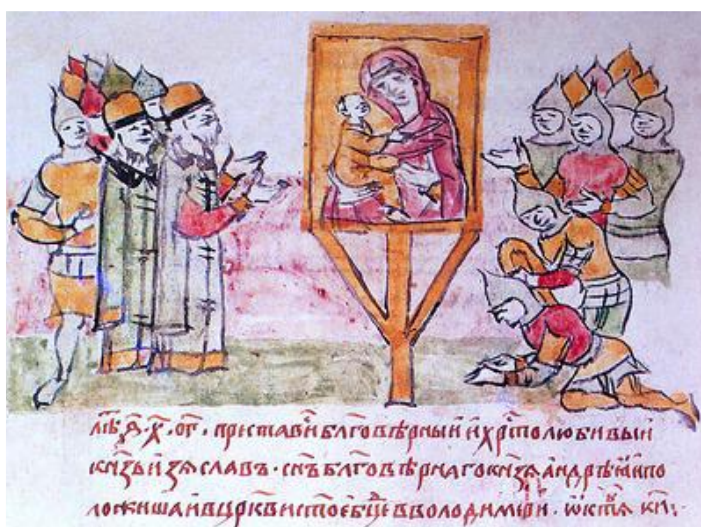 лѣ҃ ҂ѕ҃.х҃.ог҃. преставиⷭ҇ блг҃овѣрныи и хрⷭ҇толюбивыи
кнѧзь изѧславъ. сн҃ъ блг҃овѣрнаго кнѧзѧ андрѣѧ и по
ложиша и в цр҃кви ст҃ое бц҃и в володимери.